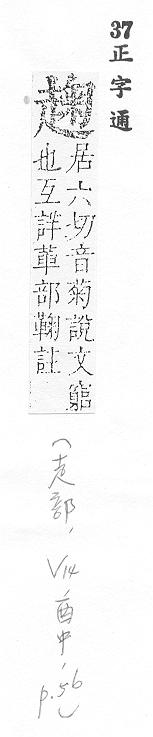 37正字通
趜
居六切音菊說文竆
也互詳革部鞠註
(走部, V14, 酉中, p.56)